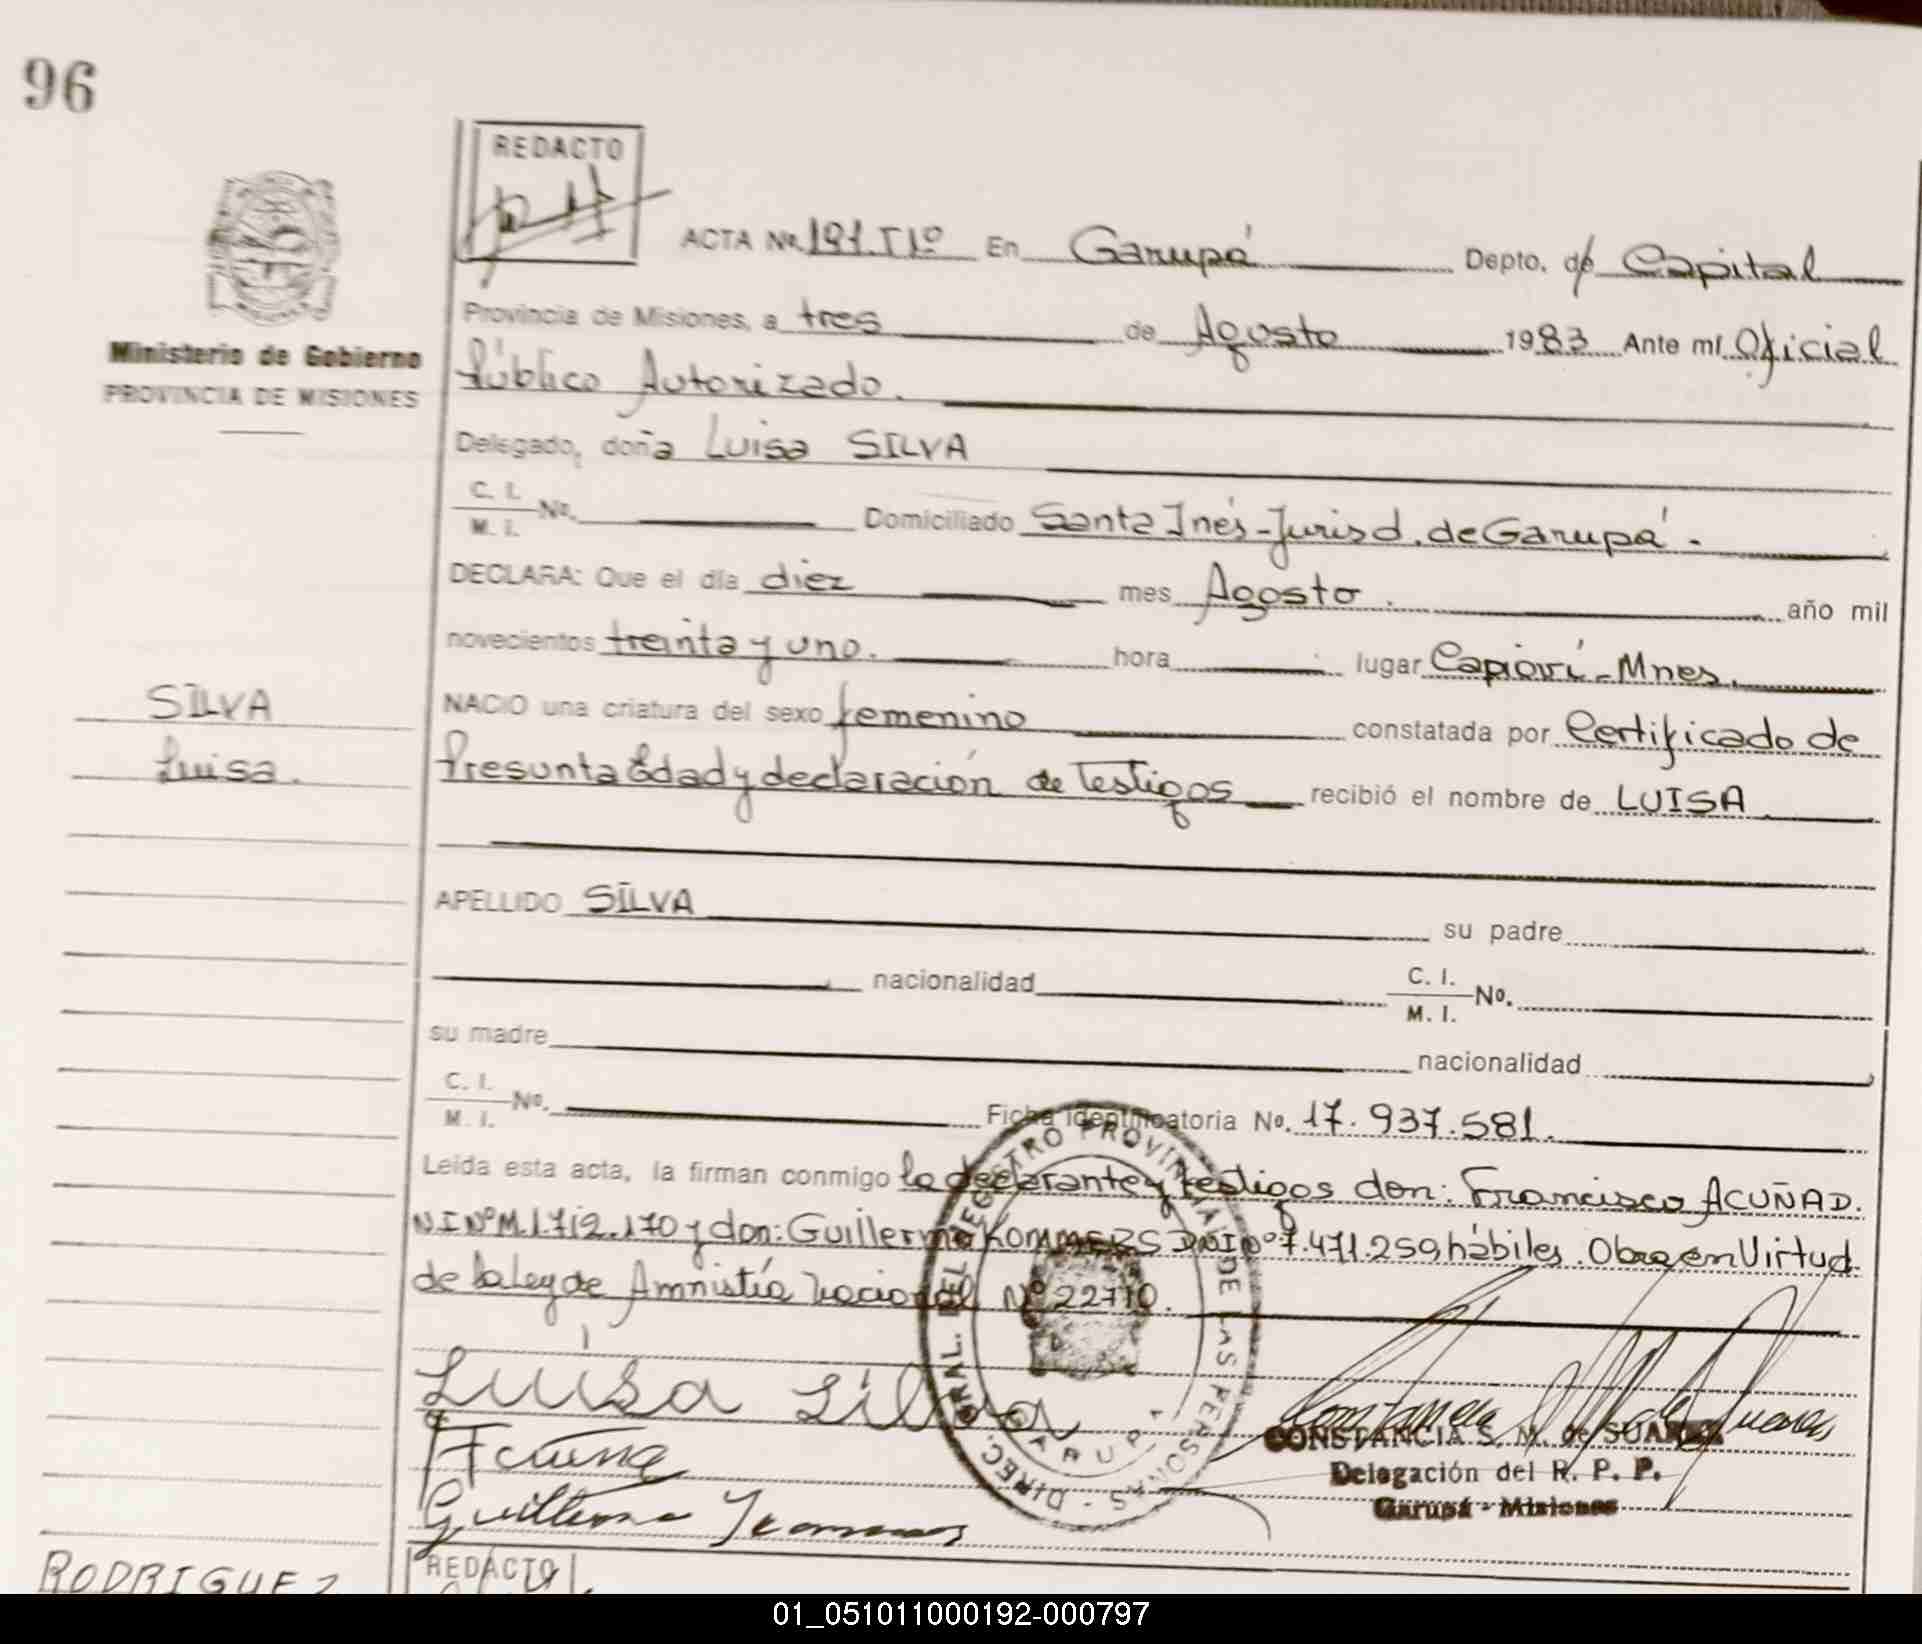 96
REDACTO
ACTA Nº 191.T1º En Garupá Depto. de Capital
Ministerio de Gobierno
PROVINCIA DE MISIONES
Provincia de Misiones, a tres de Agosto 1983 Ante mí Oficial
Público Autorizado.
Delegado, doña Luisa SILVA
C. I.
M. I. Nº. Domiciliado Santa Inés-Jurisd. de Garupá.
DECLARA: Que el día diez mes Agosto. año mil
novecientos treinta y uno. hora lugar Capioví-Mnes.
SILVA
Luisa.
NACIO una criatura del sexo femenino constatada por Certificado de
Presunta Edad y declaración de Testigos recibió el nombre de LUISA
APELLIDO SILVA su padre
nacionalidad C. I.
M. I. Nº.
su madre nacionalidad
C. I.
M. I. Nº. Ficha identificatoria No. 17.937.581.
Leida esta acta, la firman conmigo la declarante y testigos don: Francisco ACUÑA D.
NI Nº M.1.712.170 y don: Guillermo KOMMERS DNI Nº 7.471.259, hábiles. Obra en Virtud
de la Ley de Amnistía Nacional Nº 22710.
Luisa Silva
F Acuña
Guillermo
DIREC. GRAL. DEL REGISTRO PROVINCIAL DE LAS PERSONAS
GARUPA
CONSTANCIA S. M. de SUAREZ
Delegación del R. P. P.
Garupá - Misiones
RODRIGUEZ
REDACTO
01_051011000192-000797